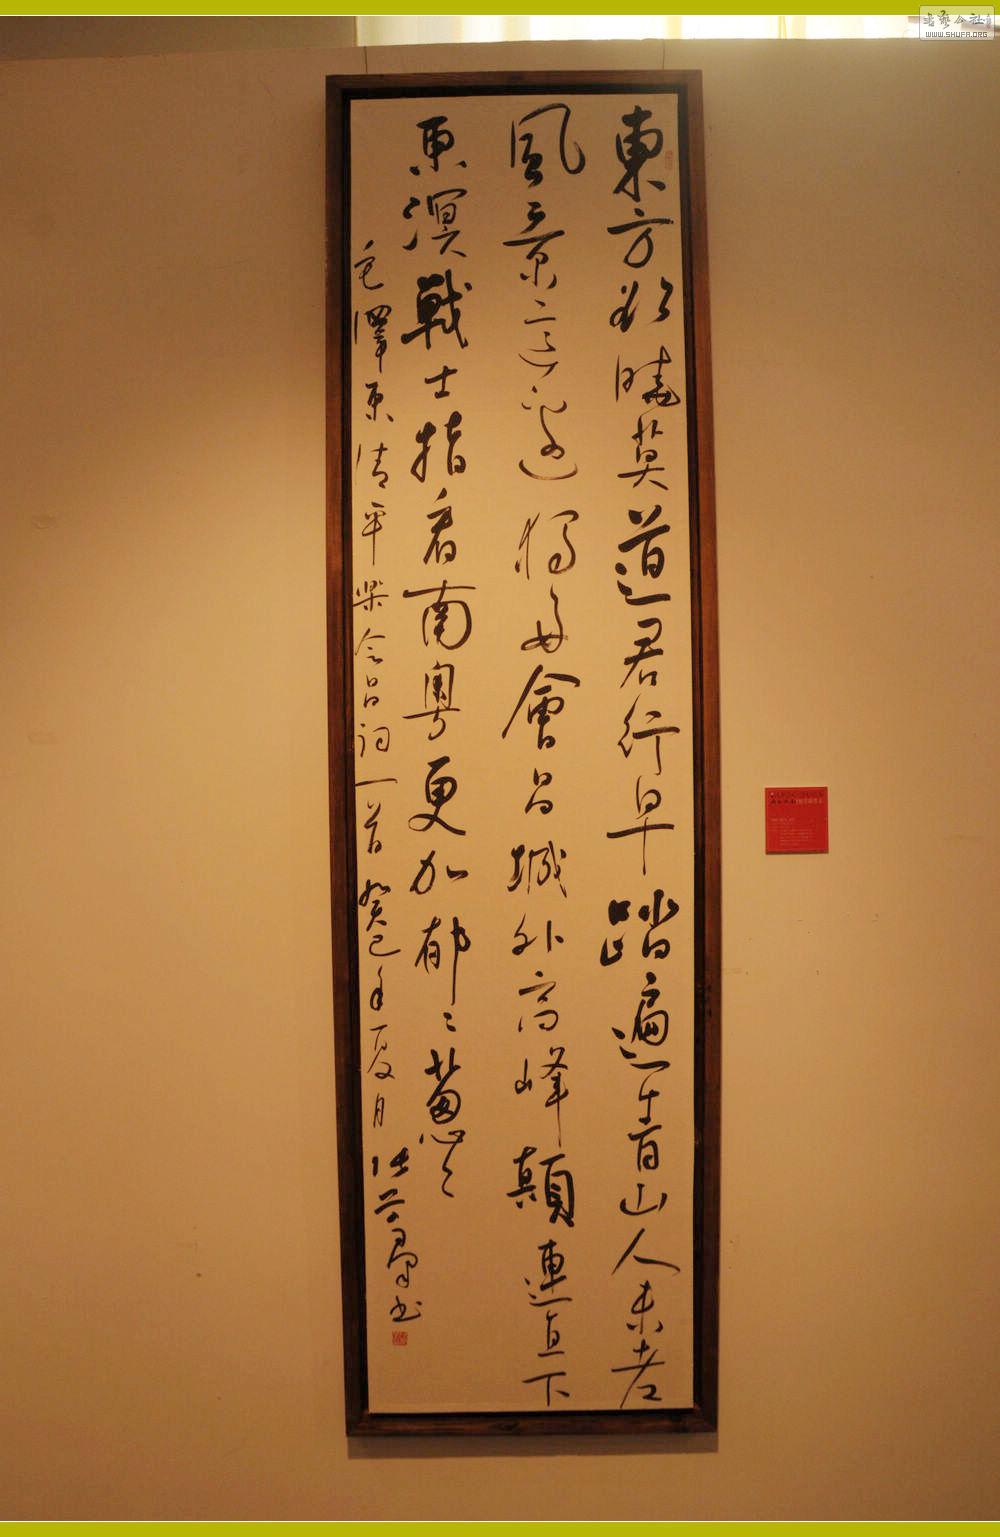 東方欲曉莫道君行早踏遍青山人未老
風景這邊獨好會昌城外高峰顛連直下
東溟戰士指看南粵更加郁〻蔥〻
毛澤東清平樂会昌詞一首癸巳年夏月 張書
书艺公社
WWW.SHUFA.ORG